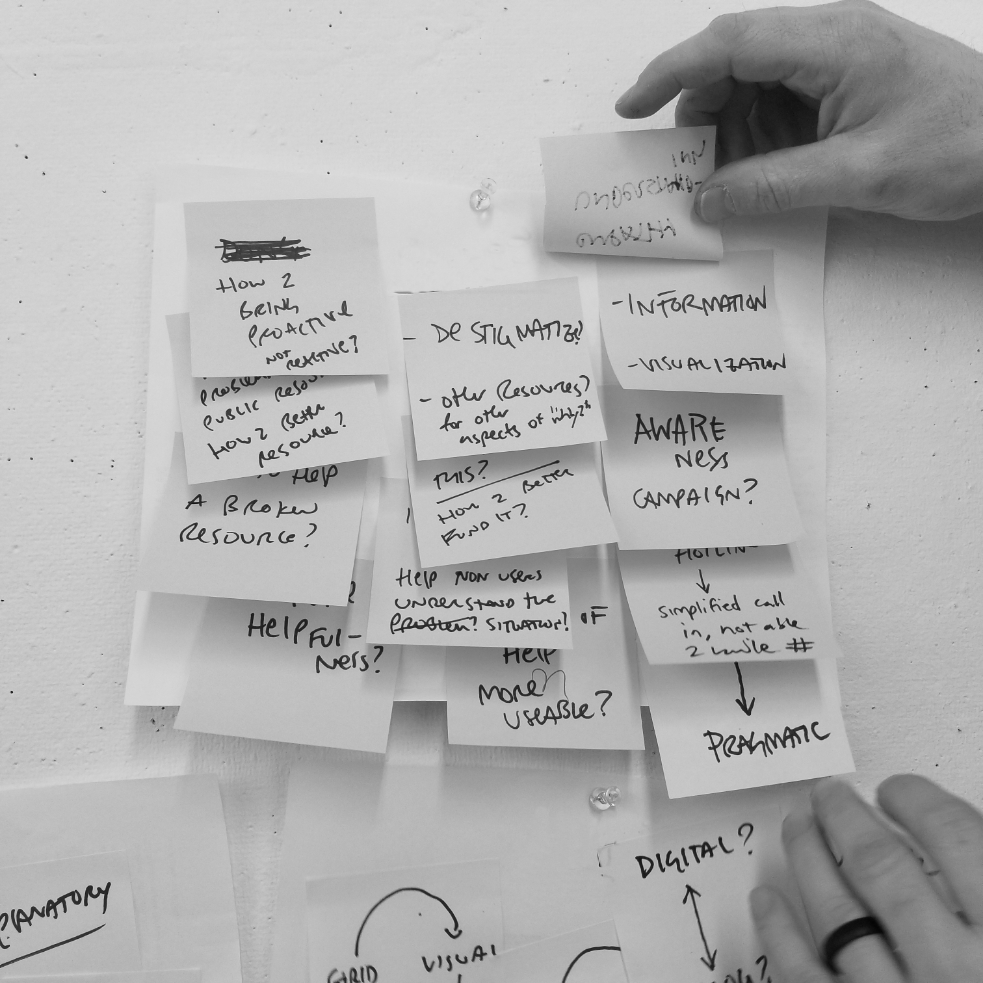 How 2
BRING
PROACTIVE
NOT REACTIVE?
PUBLIC
How 2 Better
RESOURCE?
Help
A BROKEN
RESOURCE?
HelpFUl-
Ners?
- DE STIGMATIZE?
- other Resources?
for other
aspects of
THIS?
How 2 Better
FUND IT?
Help NON USERS
UNDERSTAND THE
PROBLEM? SITUATION?
IF
Help
MORE
USEABLE?
- INFORMATION
- VISUALIZATION
AWARE
NESS
CAMPAIGN?
simplified call
in, not able
2 #
PRAGMATIC
DIGITAL?
GRID
VISUAL